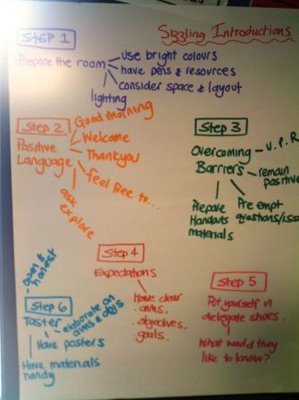 Sizzling Introductions
STEP 1
Prepare the room
use bright colours
have pens & resources
consider space & layout
lighting
Step 2
Positive
Language
Good morning
Welcome
Thankyou
feel free to...
ask
explore
Step 3
Overcoming
Barriers
V.P.R
remain
positive
Prepare
Handouts
materials
Pre empt
questions/
Step 4
Expectations
Have clear
aims,
objectives,
goals.
Step 5
Put yourself in
delegate shoes.
What would they
like to know?
Step 6
Taster
open &
honest
elaborate on
aims & objs
Have posters
Have materials
handy